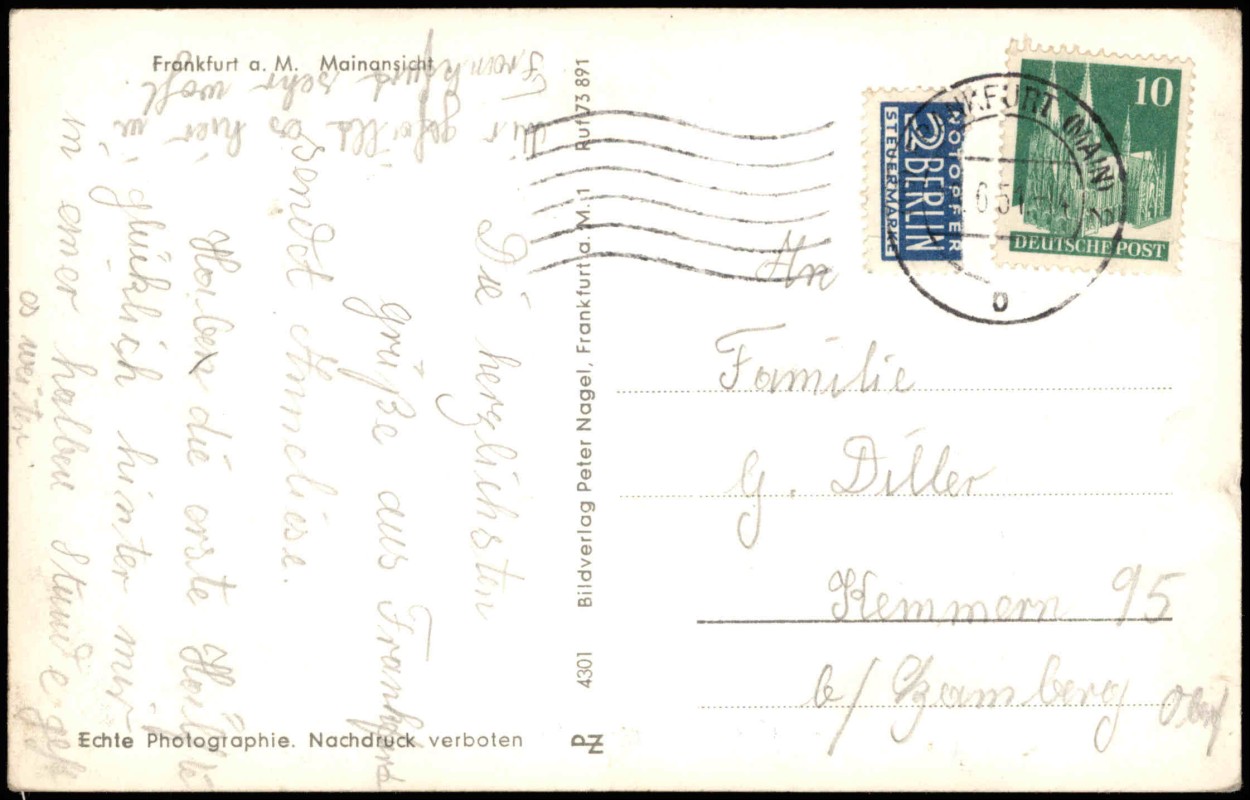 Frankfurt a. M. Mainansicht
Die herzlichsten
grüße aus Frankfurt
sendet Anneliese.
Haben die erste Hälfte
glüklich hinter mir
in einer halben Stunde geht
es weiter
Mir gefällt es hier in
Frankfurt sehr wohl.
Echte Photographie. Nachdruck verboten
4301 Bildverlag Peter Nagel, Frankfurt a. M. 1 Ruf 73 891
PZ
NOTOPFER
2 BERLIN
STEUERMARKE
10
DEUTSCHE POST
FRANKFURT (MAIN)
b
An
Familie
G. Diller
Kemmern 95
b/ Bamberg Obfr.